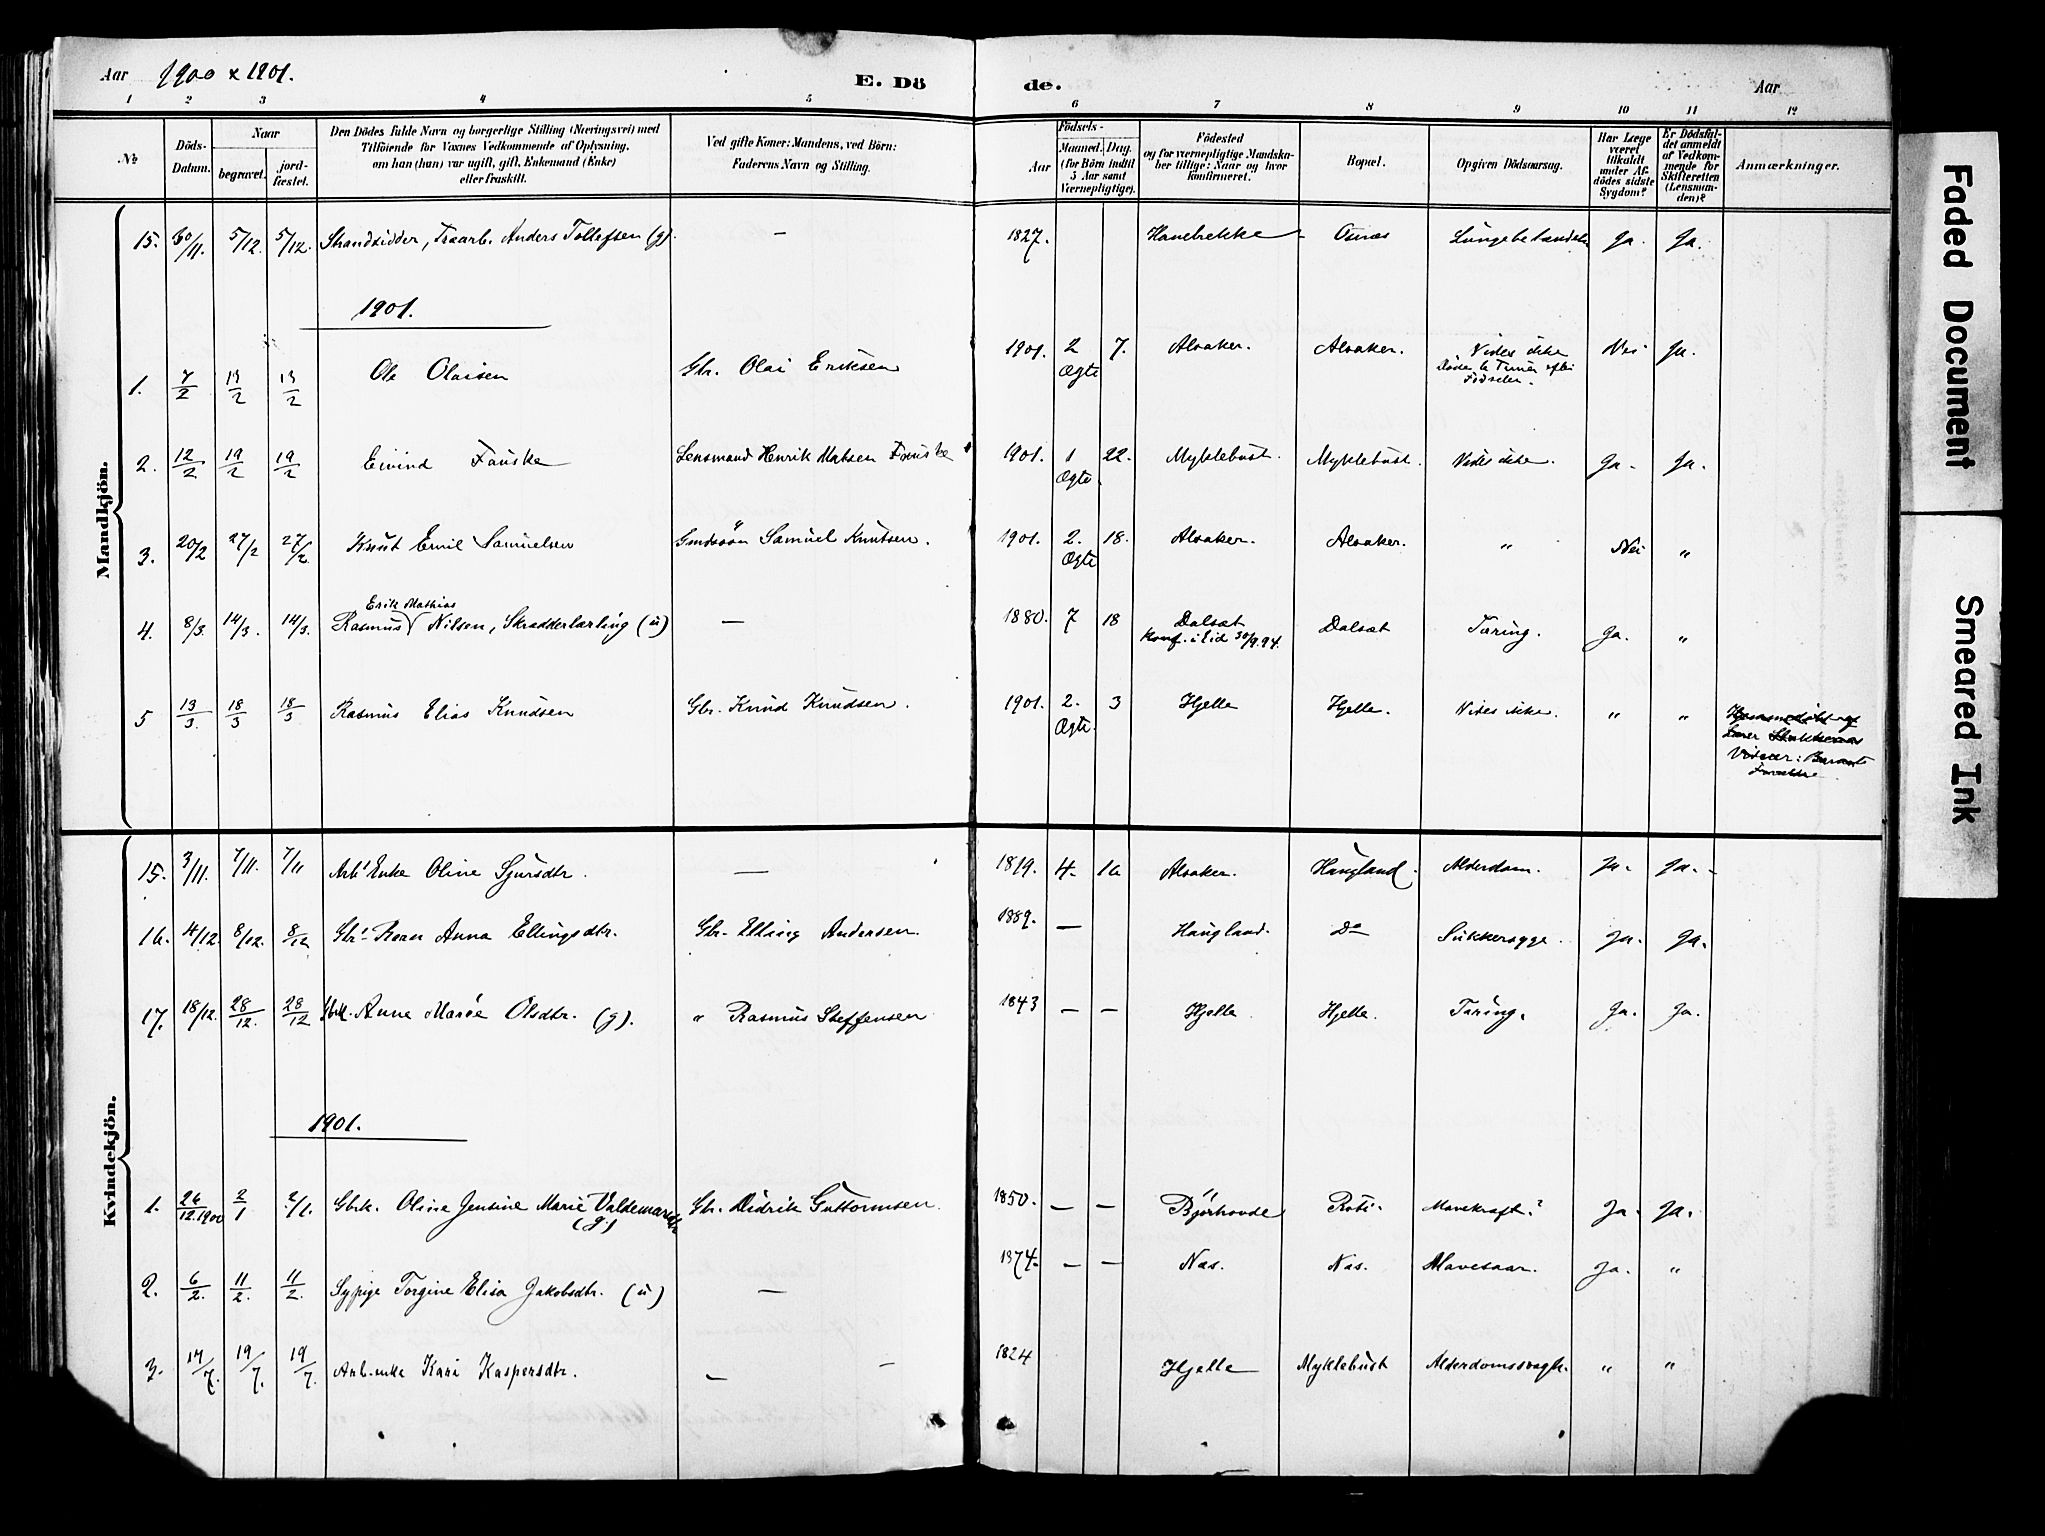 Aar 1900 & 1901.
E. Dö de.
Aar
1 2 3 4 5 6 7 8 9 10 11 12
No
Döds-Datum.
Naar
begravet.
jord-fæstet.
Den Dödes fulde Navn og borgerlige Stilling (Næringsvei) med
Tilföiende för Voxnes Vedkommende af Oplysning,
om han (hun) var ugift, gift, Enkemand (Enke)
eller fraskilt.
Ved gifte Koner: Mandens, ved Börn:
Faderens Navn og Stilling.
Födsels-
Aar
Maaned. Dag.
(for Börn indtil
5 Aar samt
Værnepligtige).
Födested
og for værnepligtige Mandska-
ber tillige: Naar og hvor
konfirmeret.
Bopæl.
Opgiven Dödsaarsag.
Har Læge
været
tilkaldt
under Af-
dödes sidste
Sygdom?
Er Dödsfal-
det anmeldt
af Vedkom-
mende for
Skifteretten
(Lensman-
den)?
Anmærkninger.
Mandkjön.
15. 30/11. 5/12. 5/12. Strandsidder, Traarb. Anders Tollefsen (g). — 1827. Hanebrekke Osnes Lungebetændelse Ja. Ja.
1901.
1. 7/2 13/2 13/2 Ole Olaisen Gbr. Olai Eriksen 1901. 2 7. Alvaker. Alvaker. Vides ikke Nei Ja.
Ægte Döde 6 Timer efter
Födselen.
2. 12/2 19/2 19/2 Eivind Fauske Lensmand Henrik Matsen Fauske 1901. 1 22. Myklebust. Myklebust. Vides ikke. Ja. Ja.
Ægte
3. 20/2 27/2 27/2 Knut Emil Samuelsen Samuel Knutsen. 1901. 2. 18. Alvaker. Alvaker. " Nei "
Ægte
Erik Mathias
4. 8/3. 14/3. 14/3. Rasmus Nilsen, Skrædderlærling (u) — 1880. 7 18 Dalsæt Dalsæt Tæring. Ja. "
Konf. i Eid 30/9.94.
5 13/3. 18/3 18/3 Rasmus Elias Knudsen Gbr. Knud Knudsen. 1901. 2. 3 Hjelle Hjelle. Vides ikke. " "
Ægte.
Kvindekjön.
15. 3/11. 7/11. 7/11 Arb. Enke Oline Sjursdtr. — 1819. 4. 16 Alvaker. Haugland. Alderdom. Ja. Ja.
16. 4/12. 8/12. 8/12 Gbr. Barn Anna Ellingsdtr. Gbr. Elling Andersen. 1889. — Haugland. Do Sukkersyge. Ja. Ja.
17. 18/12. 28/12. 28/12 Gbrk. Anne Marie Olsdtr. (g). " Rasmus Steffensen 1843 — — Hjelle Hjelle. Tæring. Ja. Ja.
1901.
1. 26/12.1900 2/1 2/1. Gbrk. Oline Jensine Marie Valdemarsdtr Gbr. Didrik Guttormsen. 1850. — — Björhovde Mavekræft? Ja. Ja.
(g)
2. 6/2. 11/2. 11/2. Sypige Torgine Elisa Jakobsdtr. (u) — 1874. — — Nas. Nas. Mavesaar. Ja. "
3. 14/7. 19/7. 19/7. Arb.enke Kari Kaspersdtr. — 1824 Hjelle Myklebust Alderdomssvaghed. " "
Faded Document
Smeared Ink